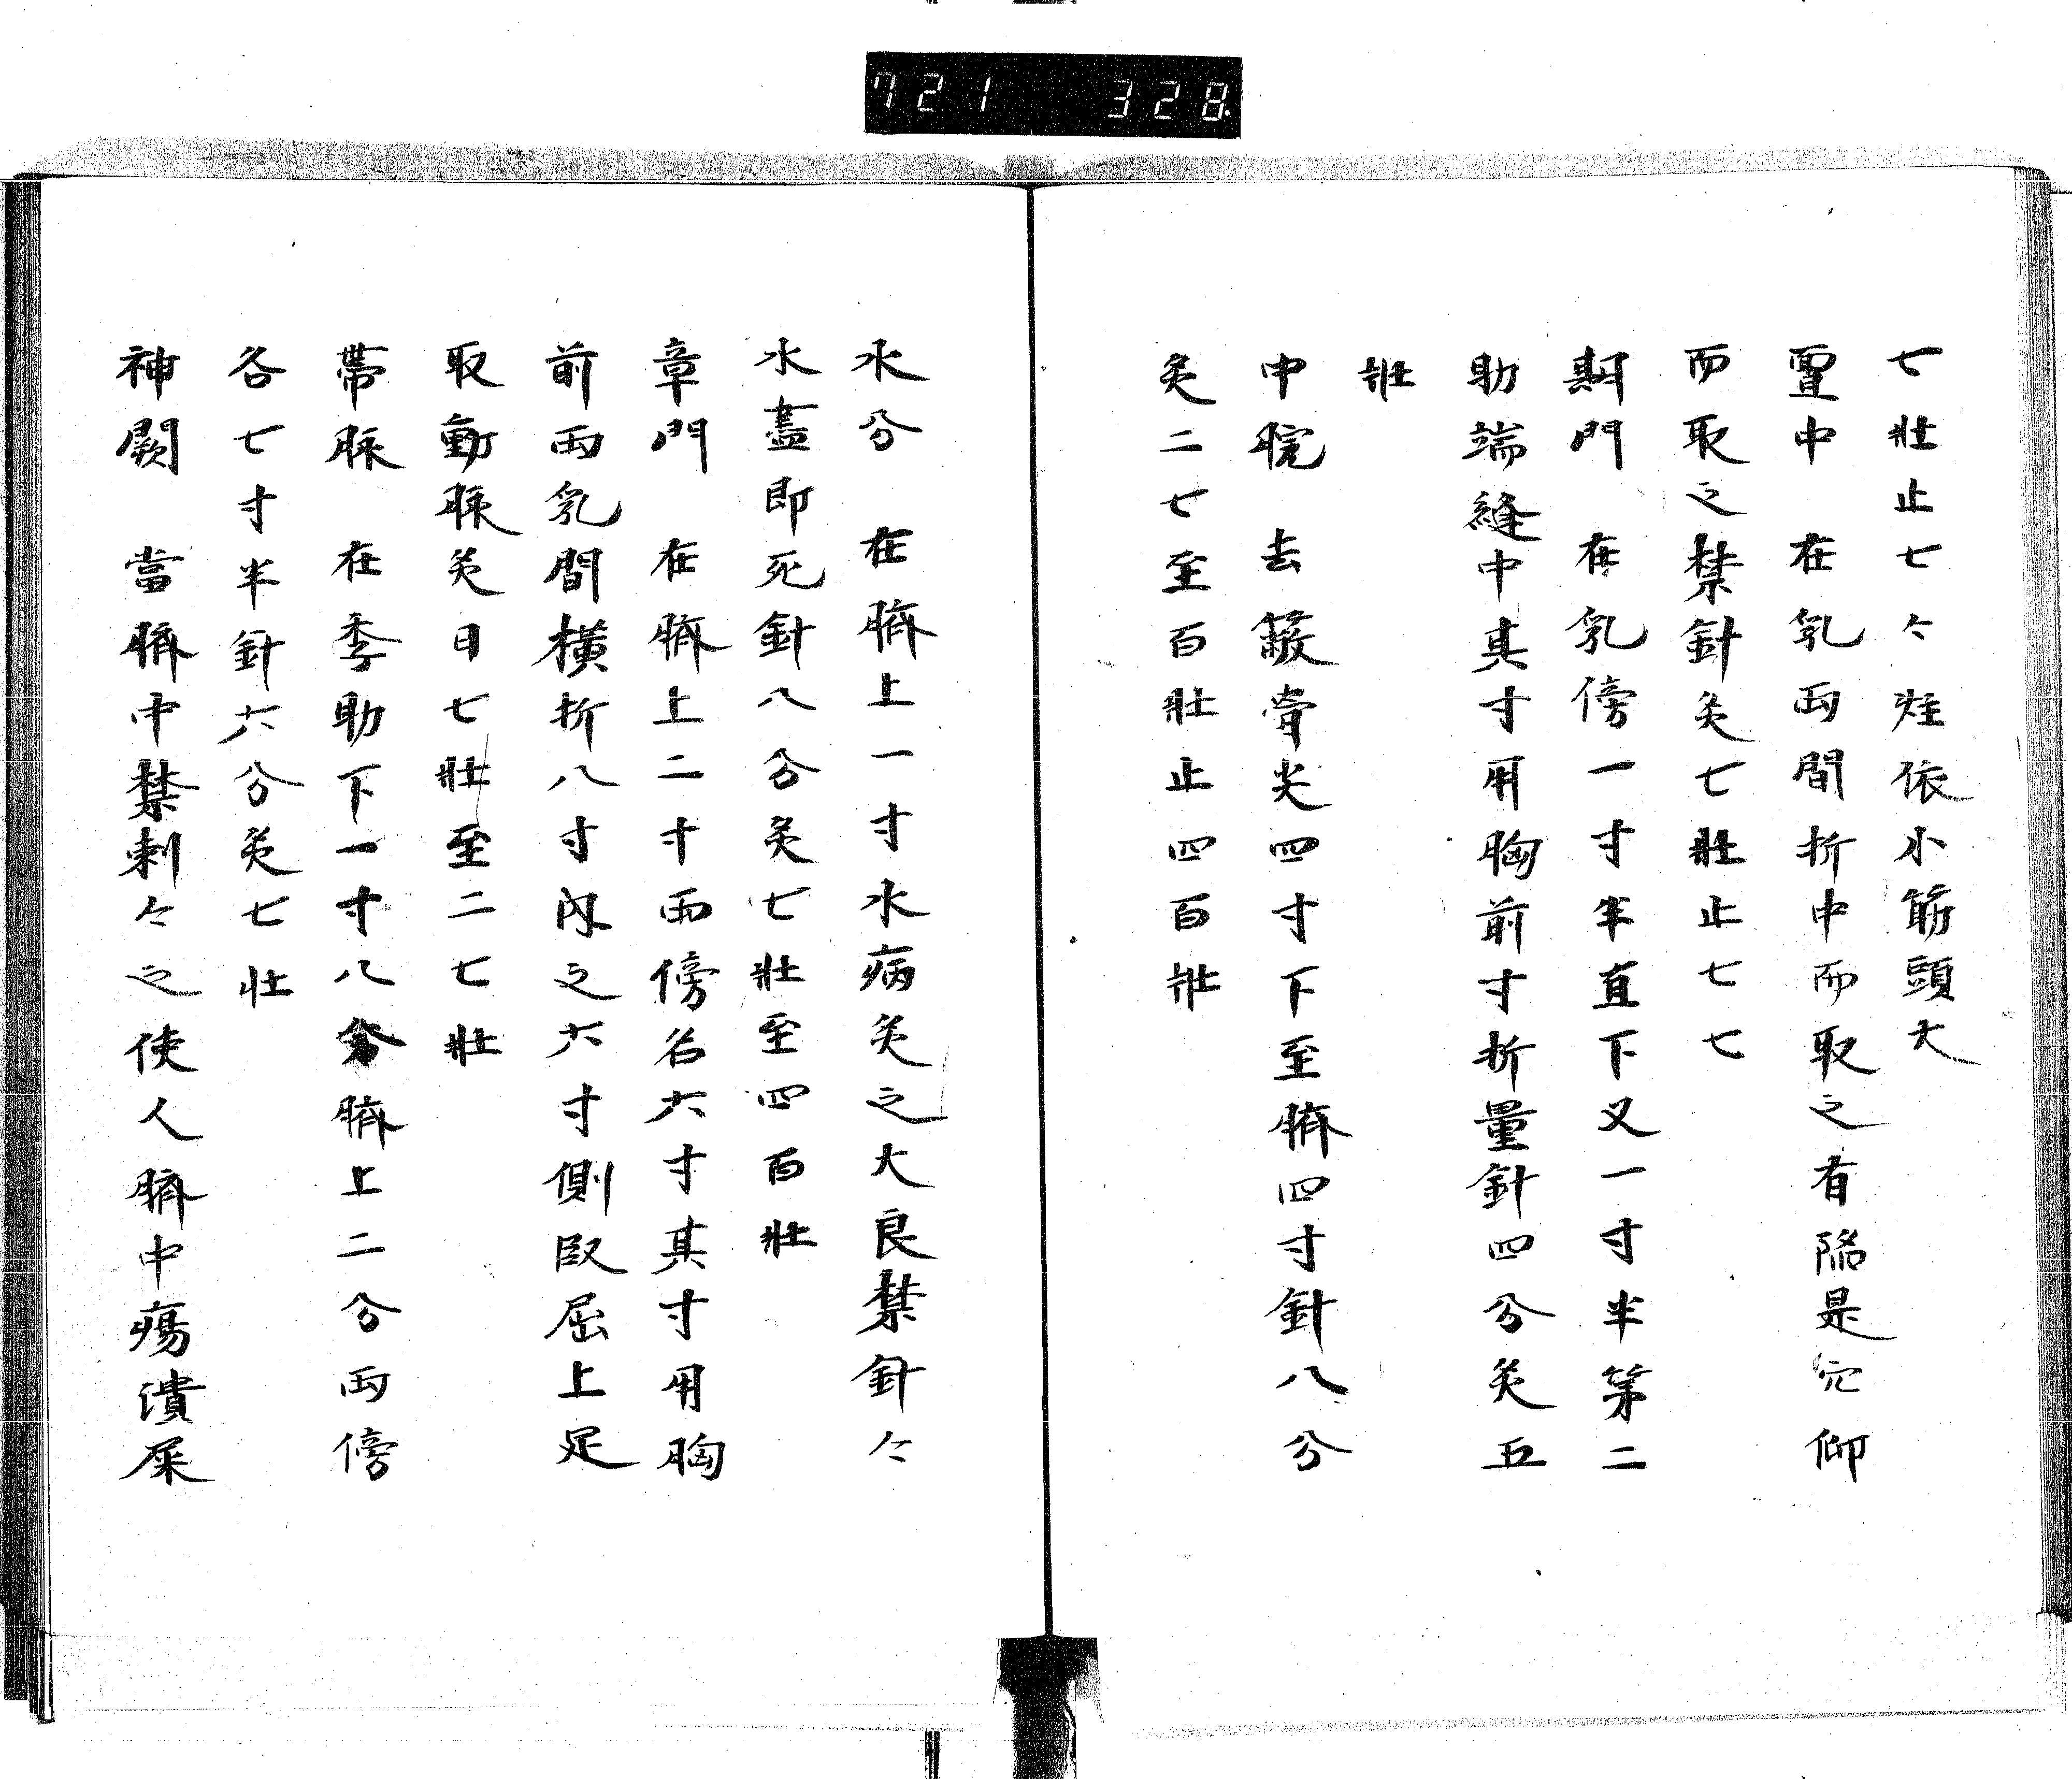 721 328
七壯止七々炷依小筋頭大
亶中 在乳両間折中而取之有陥是穴仰
而取之禁針灸七壯止七七
期門 在乳傍一寸半直下又一寸半第二
肋端縫中其寸用胸前寸折量針四分灸五
壯
中脘 去蔽骨尖四寸下至臍四寸針八分
灸二七至百壯止四百壯
水分 在臍上一寸水病灸之大良禁針々
水盡即死針八分灸七壯至四百壯
章門 在臍上二寸両傍各六寸其寸用胸
前両乳間横折八寸内之六寸側臥屈上足
取動脉灸日七壯至二七壯
帶脉 在季肋下一寸八分臍上二分両傍
各七寸半針六分灸七壯
神闕 當臍中禁刺々之使人臍中瘍潰屎